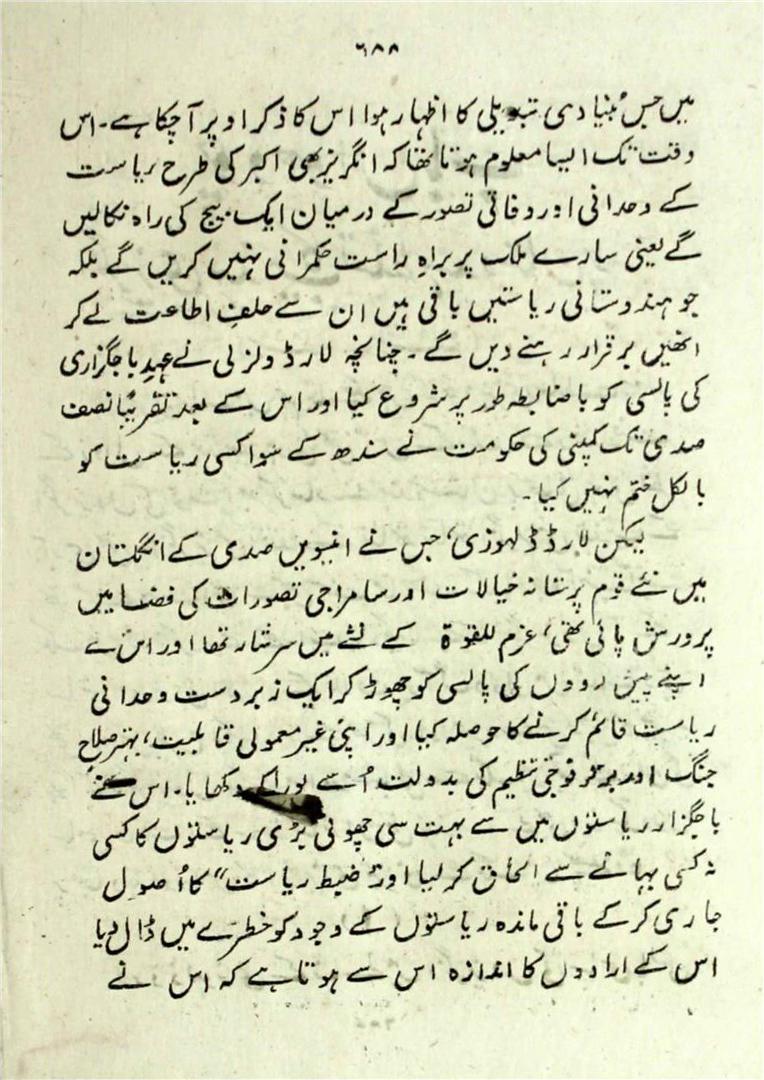 ٦٨٨
میں جس بُنیادی تبدیلی کا اظہار ہوا اس کا ذکر اوپر آ چکا ہے۔ اس
وقت تک ایسا معلوم ہوتا تھا کہ انگریز بھی اکبر کی طرح ریاست
کے وحدانی اور وفاقی تصور کے درمیان ایک بیچ کی راہ نکالیں
گے یعنی سارے ملک پر براہِ راست حکمرانی نہیں کریں گے بلکہ
جو ہندوستانی ریاستیں باقی ہیں ان سے حلفِ اطاعت لے کر
انھیں برقرار رہنے دیں گے۔ چنانچہ لارڈ ولزلی نے عہدِ باجگزاری
کی پالسی کو باضابطہ طور پر شروع کیا اور اس کے بعد تقریباً نصف
صدی تک کمپنی کی حکومت نے سندھ کے سوا کسی ریاست کو
بالکل ختم نہیں کیا۔
لیکن لارڈ ڈلہوزی، جس نے انیسویں صدی کے انگلستان
میں نئے قوم پرستانہ خیالات اور سامراجی تصورات کی فضا میں
پرورش پائی تھی، عزم للقوۃ کے نشے میں سرشار تھا اور اس نے
اپنے پیش رووں کی پالسی کو چھوڑ کر ایک زبردست وحدانی
ریاست قائم کرنے کا حوصلہ کیا اور اپنی غیر معمولی قابلیت، بہتر سلاحِ
جنگ اور برتر فوجی تنظیم کی بدولت اُسے پورا کر دکھایا۔ اس نے
باجگزار ریاستوں میں سے بہت سی چھوٹی بڑی ریاستوں کا کسی
نہ کسی بہانے سے الحاق کر لیا اور "ضبط ریاست" کا اُصول
جاری کرکے باقی ماندہ ریاستوں کے وجود کو خطرے میں ڈال دیا
اس کے ارادوں کا اندازہ اس سے ہوتا ہے کہ اس نے